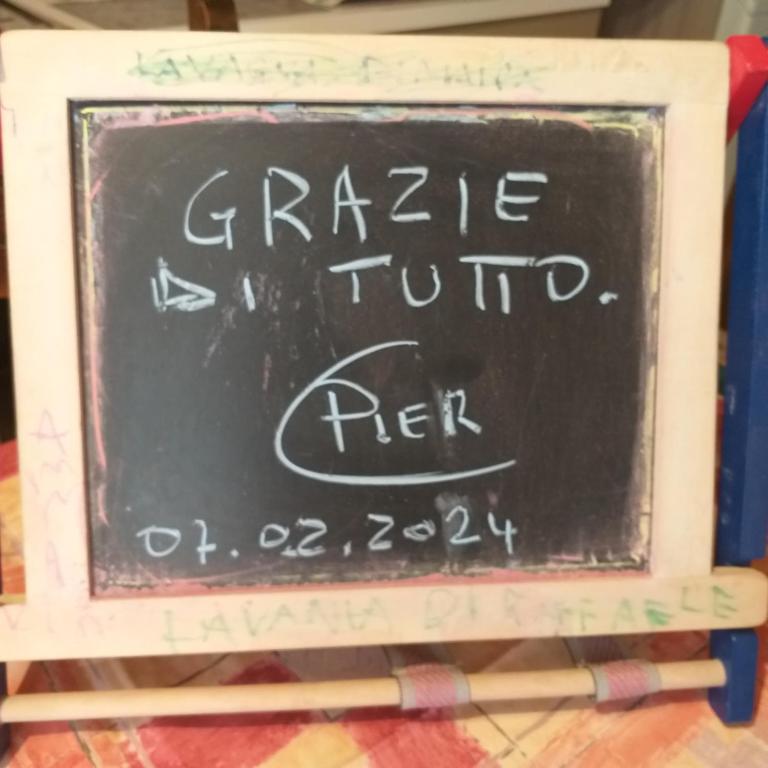 GRAZIE
DI TUTTO.
PIER
07.02.2024
LAVANIA DI RAFFAELE